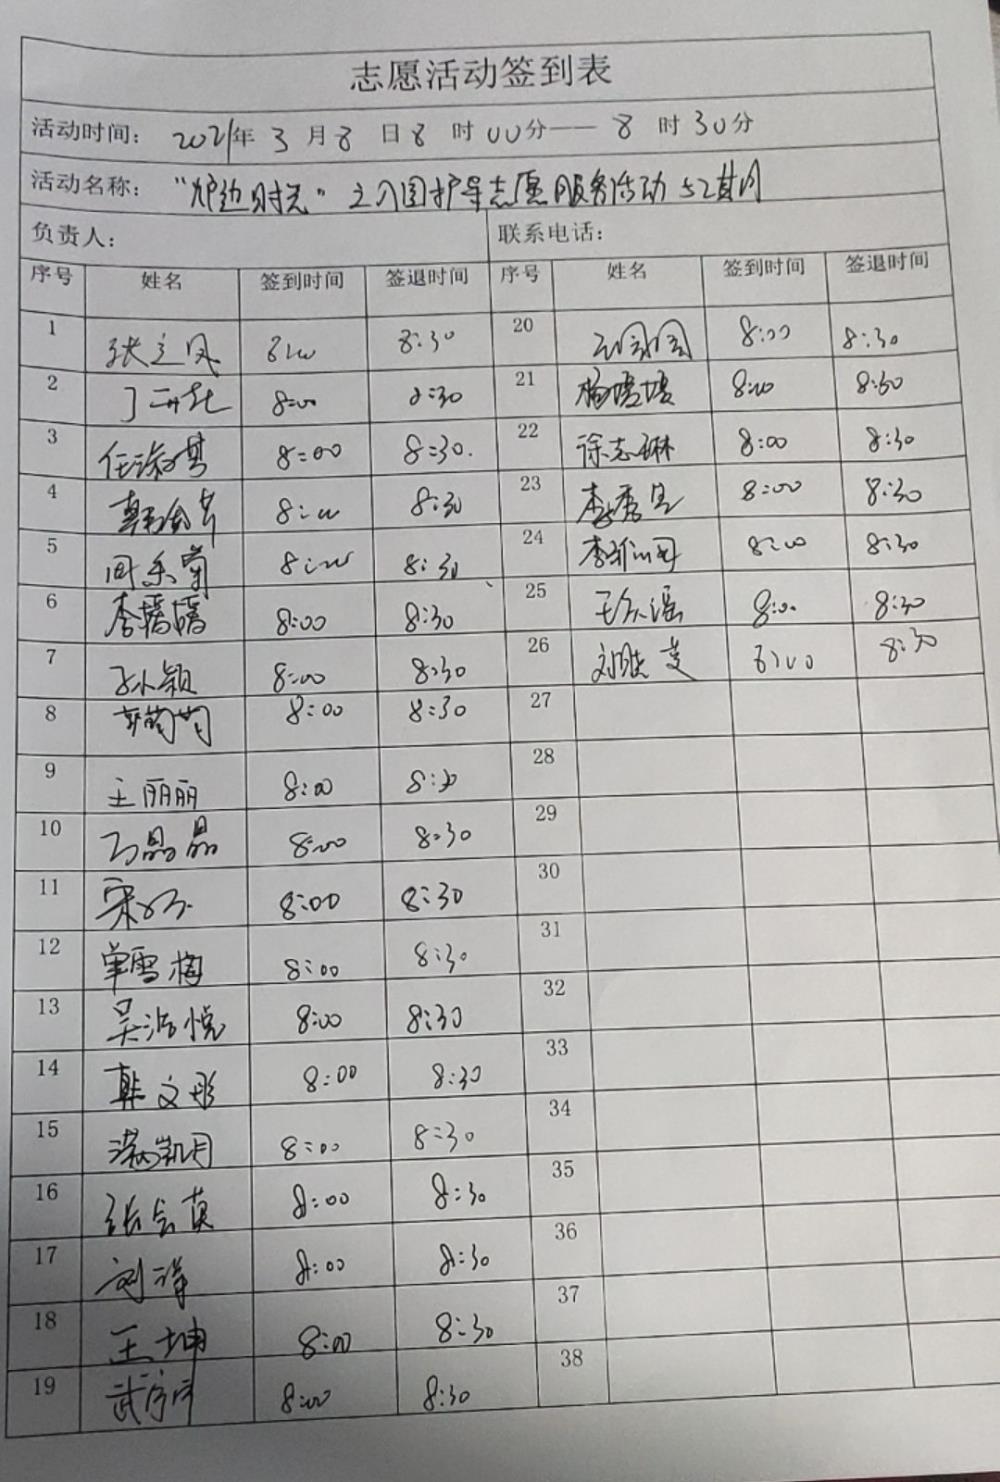 志愿活动签到表
活动时间: 2021年 3 月 8 日 8 时 00分—— 8 时 30分
活动名称: "炉边时光" 之入园护导志愿服务活动
负责人: 联系电话:
序号 姓名 签到时间 签退时间 序号 姓名 签到时间 签退时间
1 张立凤 8:00 8:30 20 8:00 8:30
2 8:00 8:30 21 杨媛媛 8:00 8:30
3 8:00 8:30. 22 徐志琳 8:00 8:30
4 8:00 8:30 23 8:00 8:30
5 8:00 8:30 24 8:00 8:30
6 李嫣嫣 8:00 8:30 25 8:00 8:30
7 孙小颖 8:00 8:30 26 刘胜 8:00 8:30
8 8:00 8:30 27
9 王丽丽 8:00 8:30 28
10 晶晶 8:00 8:30 29
11 宋 8:00 8:30 30
12 单雪梅 8:00 8:30 31
13 吴浩悦 8:00 8:30 32
14 韩文彤 8:00 8:30 33
15 满凯月 8:00 8:30 34
16 张会英 8:00 8:30 35
17 刘萍 8:00 8:30 36
18 王坤 8:00 8:30 37
19 武宁宁 8:00 8:30 38